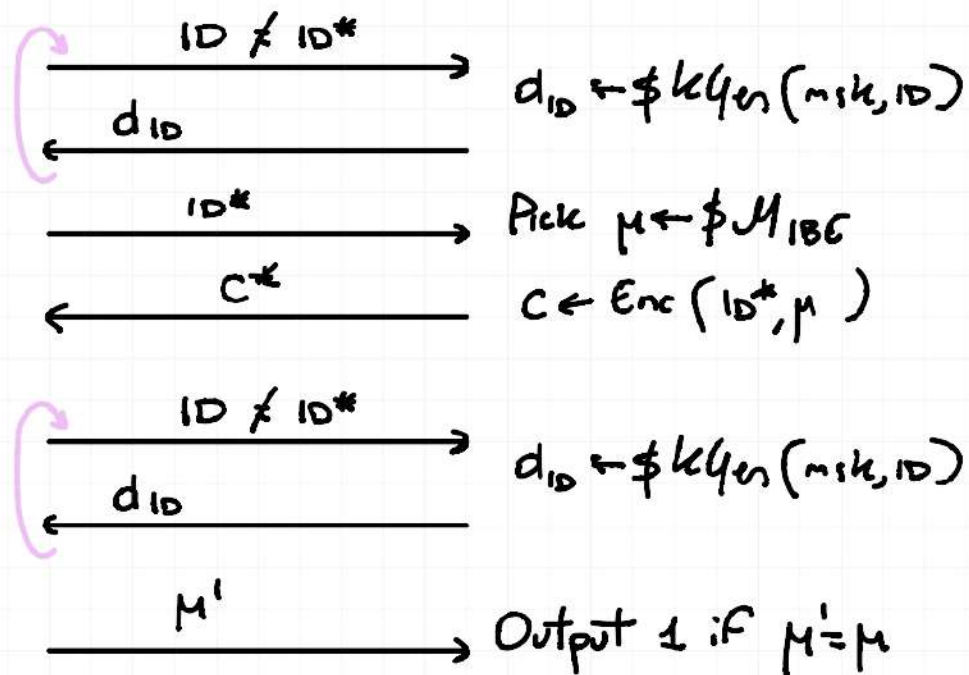 ID ≠ ID*
d_ID ←$ KGen(msk, ID)
d_ID
ID*
Pick μ ←$ M_IBE
C*
C ← Enc(ID*, μ)
ID ≠ ID*
d_ID ←$ KGen(msk, ID)
d_ID
μ'
Output 1 if μ' = μ